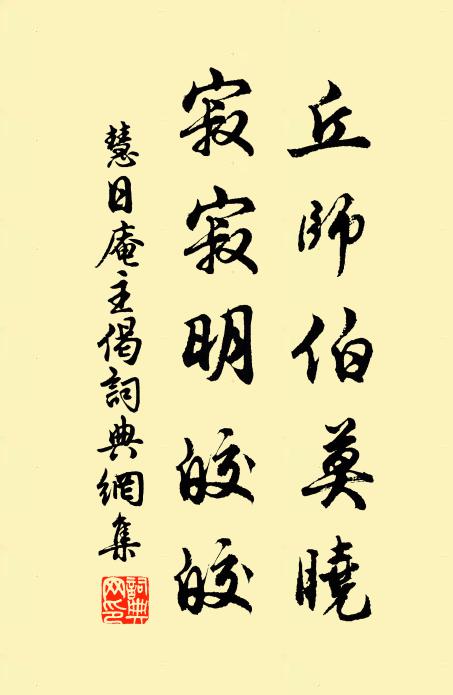 丘師伯莫曉
寂寂明皎皎
慧日庵主偈詞典網集